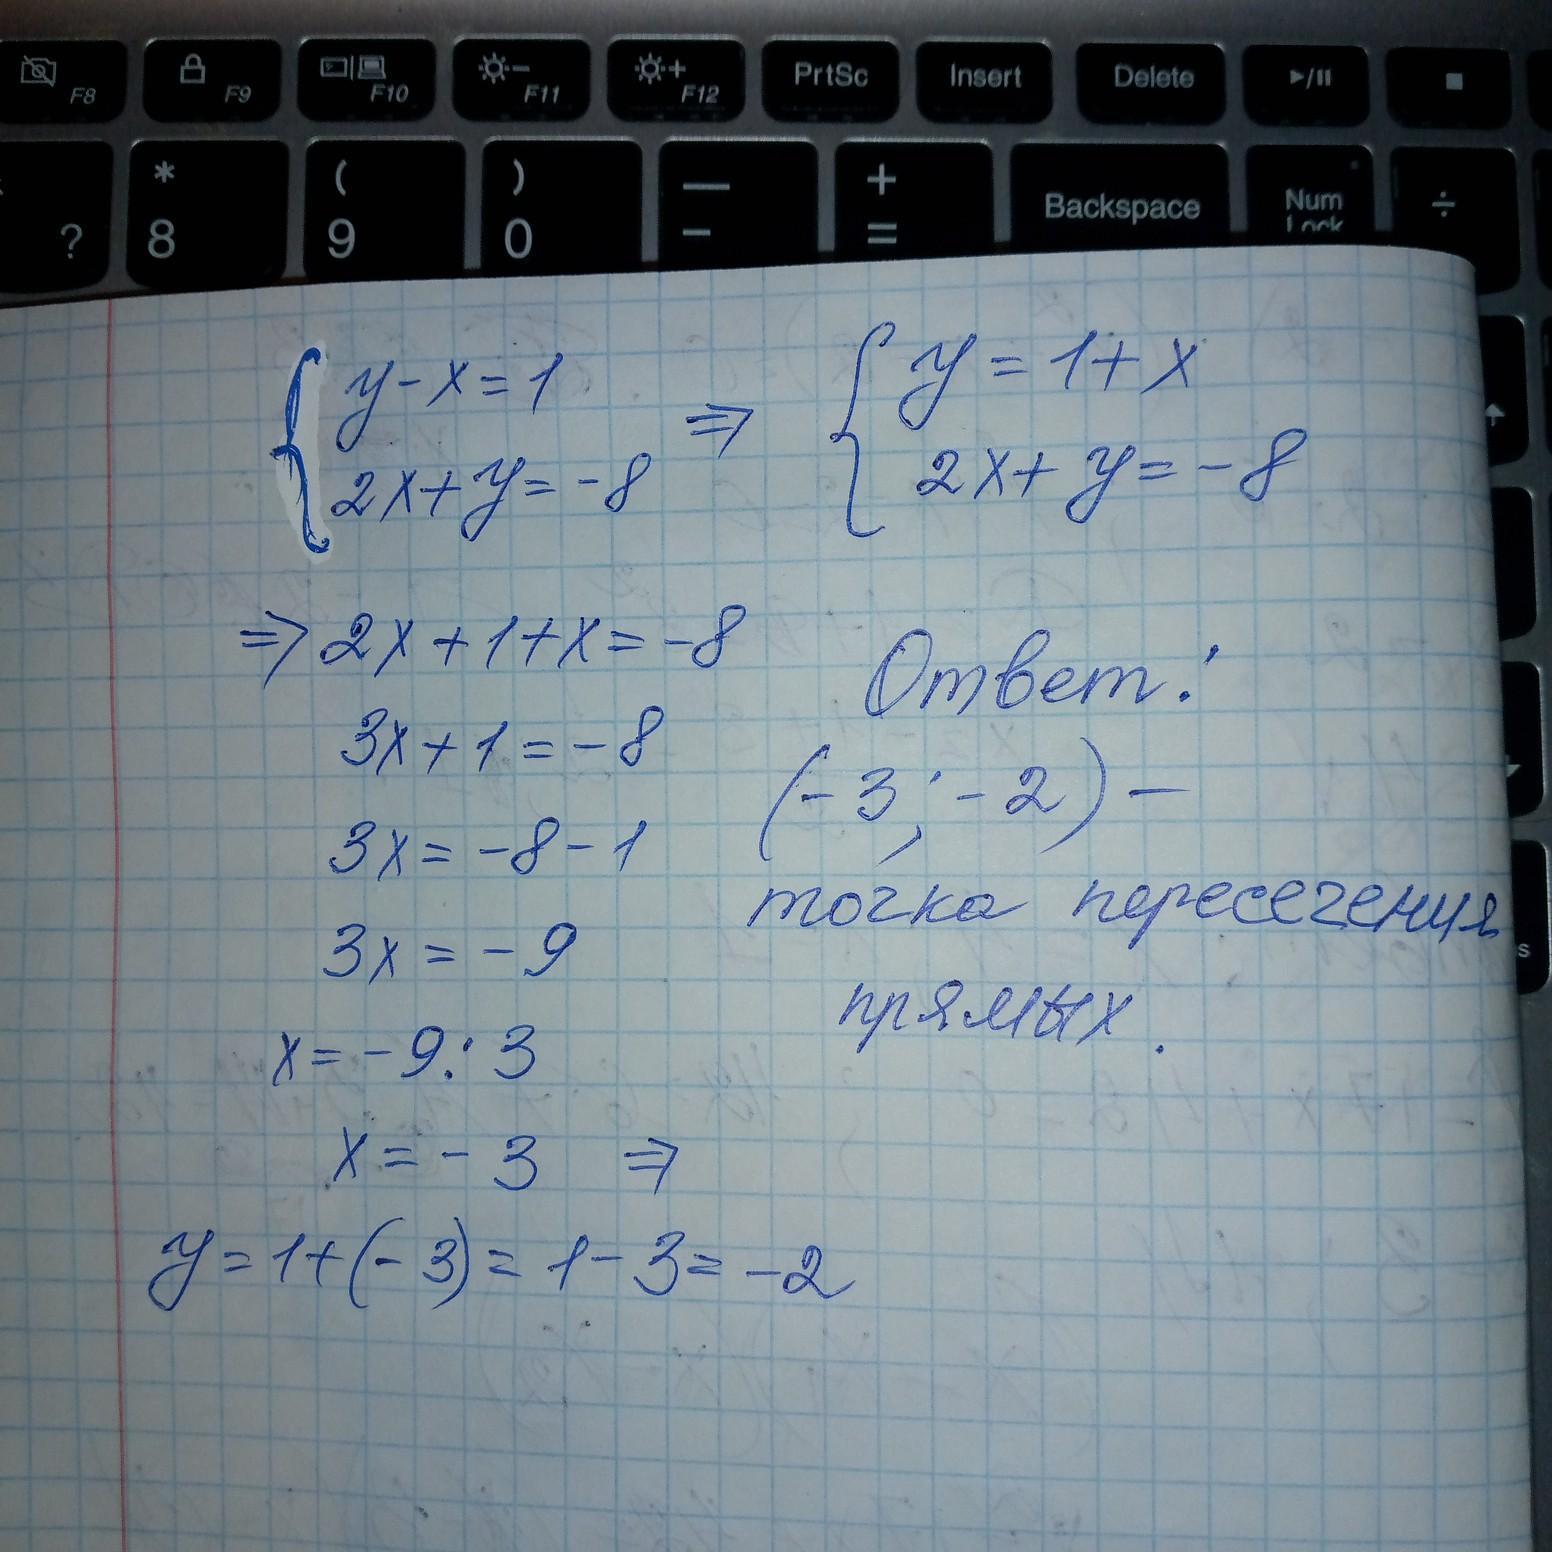 F8 F9 F10 F11 F12 PrtSc Insert Delete
? * 8 ( 9 ) 0 — - + = Backspace Num Lock ÷
y-x=1 ⇒ y=1+x
2x+y=-8 2x+y=-8
⇒ 2x+1+x=-8
3x+1=-8
3x=-8-1
3x=-9
x=-9:3
x=-3 ⇒
y=1+(-3)=1-3=-2
Ответ:
(-3;-2)-
точка пересечения
прямых.
s